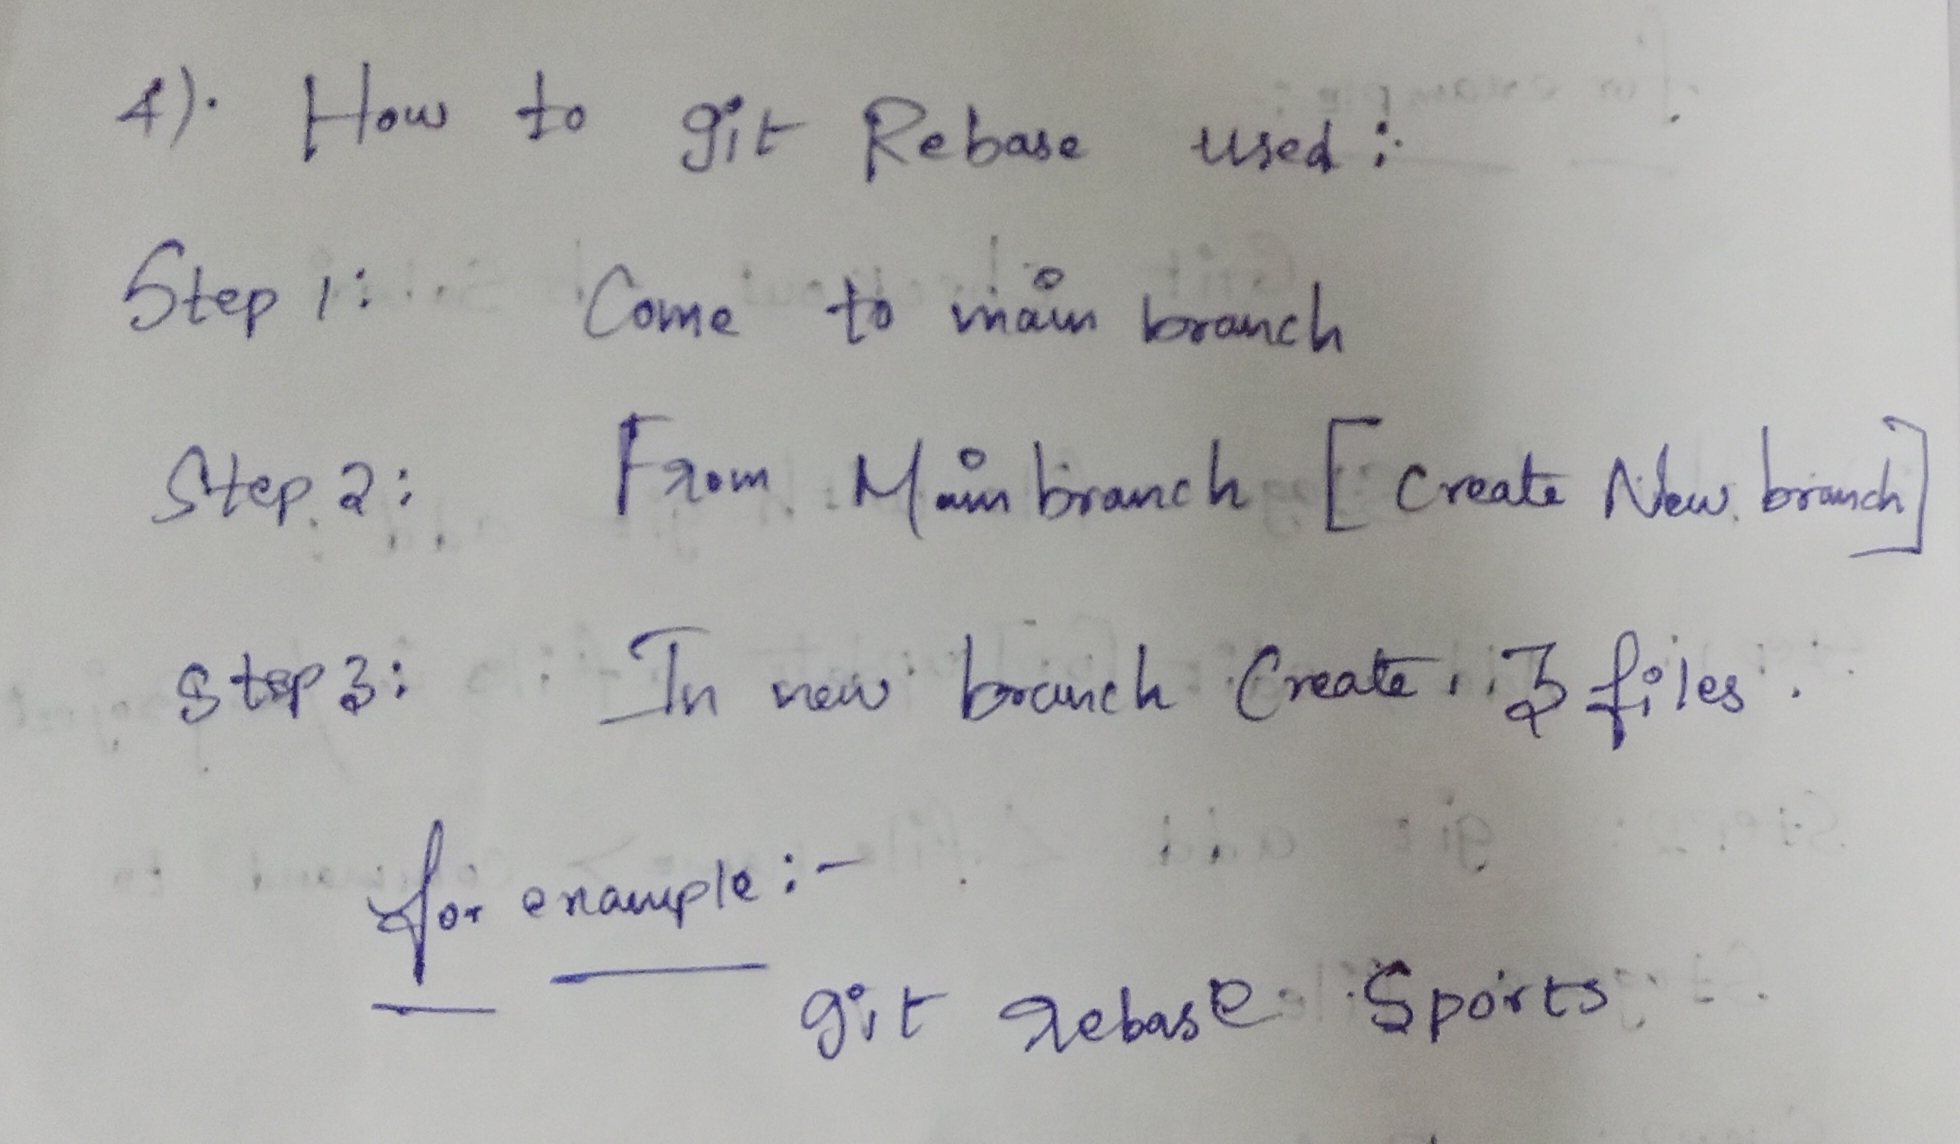 4). How to git Rebase used :-
Step 1: Come to main branch
Step 2: From Main branch [Create New branch]
Step 3: In new branch Create 3 files.
for example :-
git rebase Sports